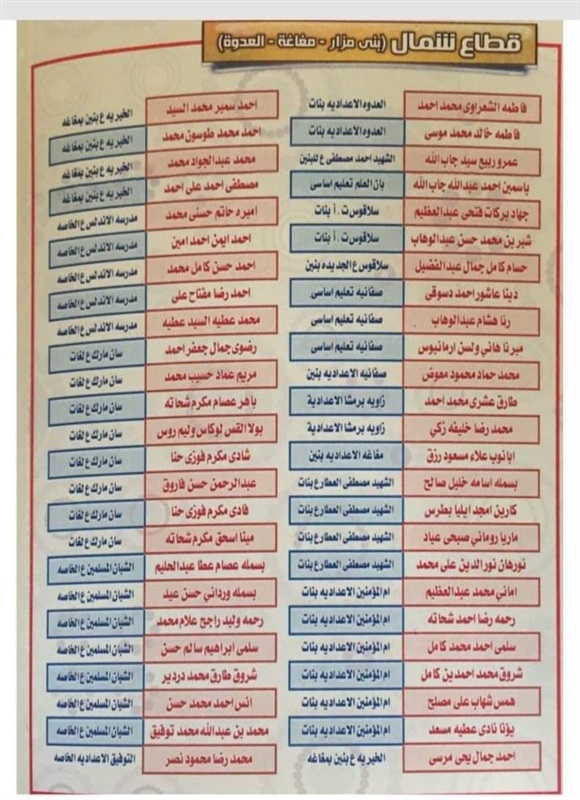 قطاع شمال (بنى مزار - مغاغة - العدوة)
فاطمه الشعراوى محمد احمد العدوه الاعداديه بنات
فاطمه خالد محمد موسى العدوه الاعداديه بنات
عمرو ربيع سيد جاب الله الشهيد احمد مصطفى ع للبنين
ياسمين احمد عبدالله جاب الله بان العلم تعليم اساسى
جهاد بركات فتحى عبدالعظيم سلاقوس ت . أ بنات
شيرين محمد حسن عبدالوهاب سلاقوس ت . أ بنات
حسام كامل جمال عبدالفضيل سلاقوس ع الجديده بنين
دينا عاشور احمد دسوقى صفانيه تعليم اساسى
رنا هشام عبدالوهاب صفانيه تعليم اساسى
ميرنا هاني ولسن ارمانيوس صفانيه تعليم اساسى
محمد حماد محمود معوض صفانيه الاعداديه بنين
طارق عشرى محمد احمد زاويه برمشا الاعدادية
محمد رضا خليفه زكي زاويه برمشا الاعدادية
ابانوب علاء مسعود رزق مغاغه الاعداديه بنين
بسمله اسامه خليل صالح الشهيد مصطفى العطار ع بنات
كارين امجد ايليا بطرس الشهيد مصطفى العطار ع بنات
ماريا روماني صبحى عياد الشهيد مصطفى العطار ع بنات
نورهان نور الدين على محمد الشهيد مصطفى العطار ع بنات
اماني محمد عبدالعظيم ام المؤمنين الاعداديه بنات
رحمه رضا احمد شحاته ام المؤمنين الاعداديه بنات
سلمى احمد محمد كامل ام المؤمنين الاعداديه بنات
شروق محمد احمدين كامل ام المؤمنين الاعداديه بنات
همس شهاب على مصلح ام المؤمنين الاعداديه بنات
يؤنا نادى عطيه مسعد ام المؤمنين الاعداديه بنات
احمد جمال يحى مرسى الخيريه ع بنين بمغاغه
احمد سمير محمد السيد الخيريه ع بنين بمغاغه
احمد محمد طوسون محمد الخيريه ع بنين بمغاغه
محمد عبدالجواد محمد الخيريه ع بنين بمغاغه
مصطفى احمد على احمد الخيريه ع بنين بمغاغه
اميره حاتم حسنى محمد مدرسه الاندلس ع الخاصه
احمد ايمن احمد امين مدرسه الاندلس ع الخاصه
احمد حسن كامل محمد مدرسه الاندلس ع الخاصه
احمد رضا مفتاح على مدرسه الاندلس ع الخاصه
محمد عطيه السيد عطيه مدرسه الاندلس ع الخاصه
رضوى جمال جعفر احمد سان مارك ع لغات
مريم عماد حسيب محمد سان مارك ع لغات
باهر عصام مكرم شحاته سان مارك ع لغات
بولا القس لوكاس وليم روس سان مارك ع لغات
شادى مكرم فوزى حنا سان مارك ع لغات
عبدالرحمن حسن فاروق سان مارك ع لغات
فادى مكرم فوزى حنا سان مارك ع لغات
مينا اسحق مكرم شحاته سان مارك ع لغات
بسمله عصام عطا عبدالحليم الشبان المسلمين ع الخاصه
بسمله ورداني حسن عيد الشبان المسلمين ع الخاصه
رحمه وليد راجح علام محمد الشبان المسلمين ع الخاصه
سلمى ابراهيم سالم حسن الشبان المسلمين ع الخاصه
شروق طارق محمد دردير الشبان المسلمين ع الخاصه
انس احمد محمد حسن الشبان المسلمين ع الخاصه
محمد بن عبدالله محمد توفيق الشبان المسلمين ع الخاصه
محمد رضا محمود نصر التوفيق الاعداديه الخاصه